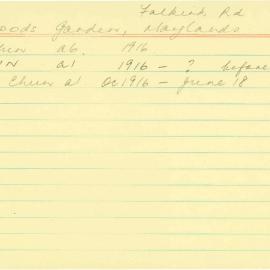 Falkirk Rd
oods Garden, Maylands
hun ab. 1916.
UN at 1916 - ? before
Chun at Oc 1916 - June 18